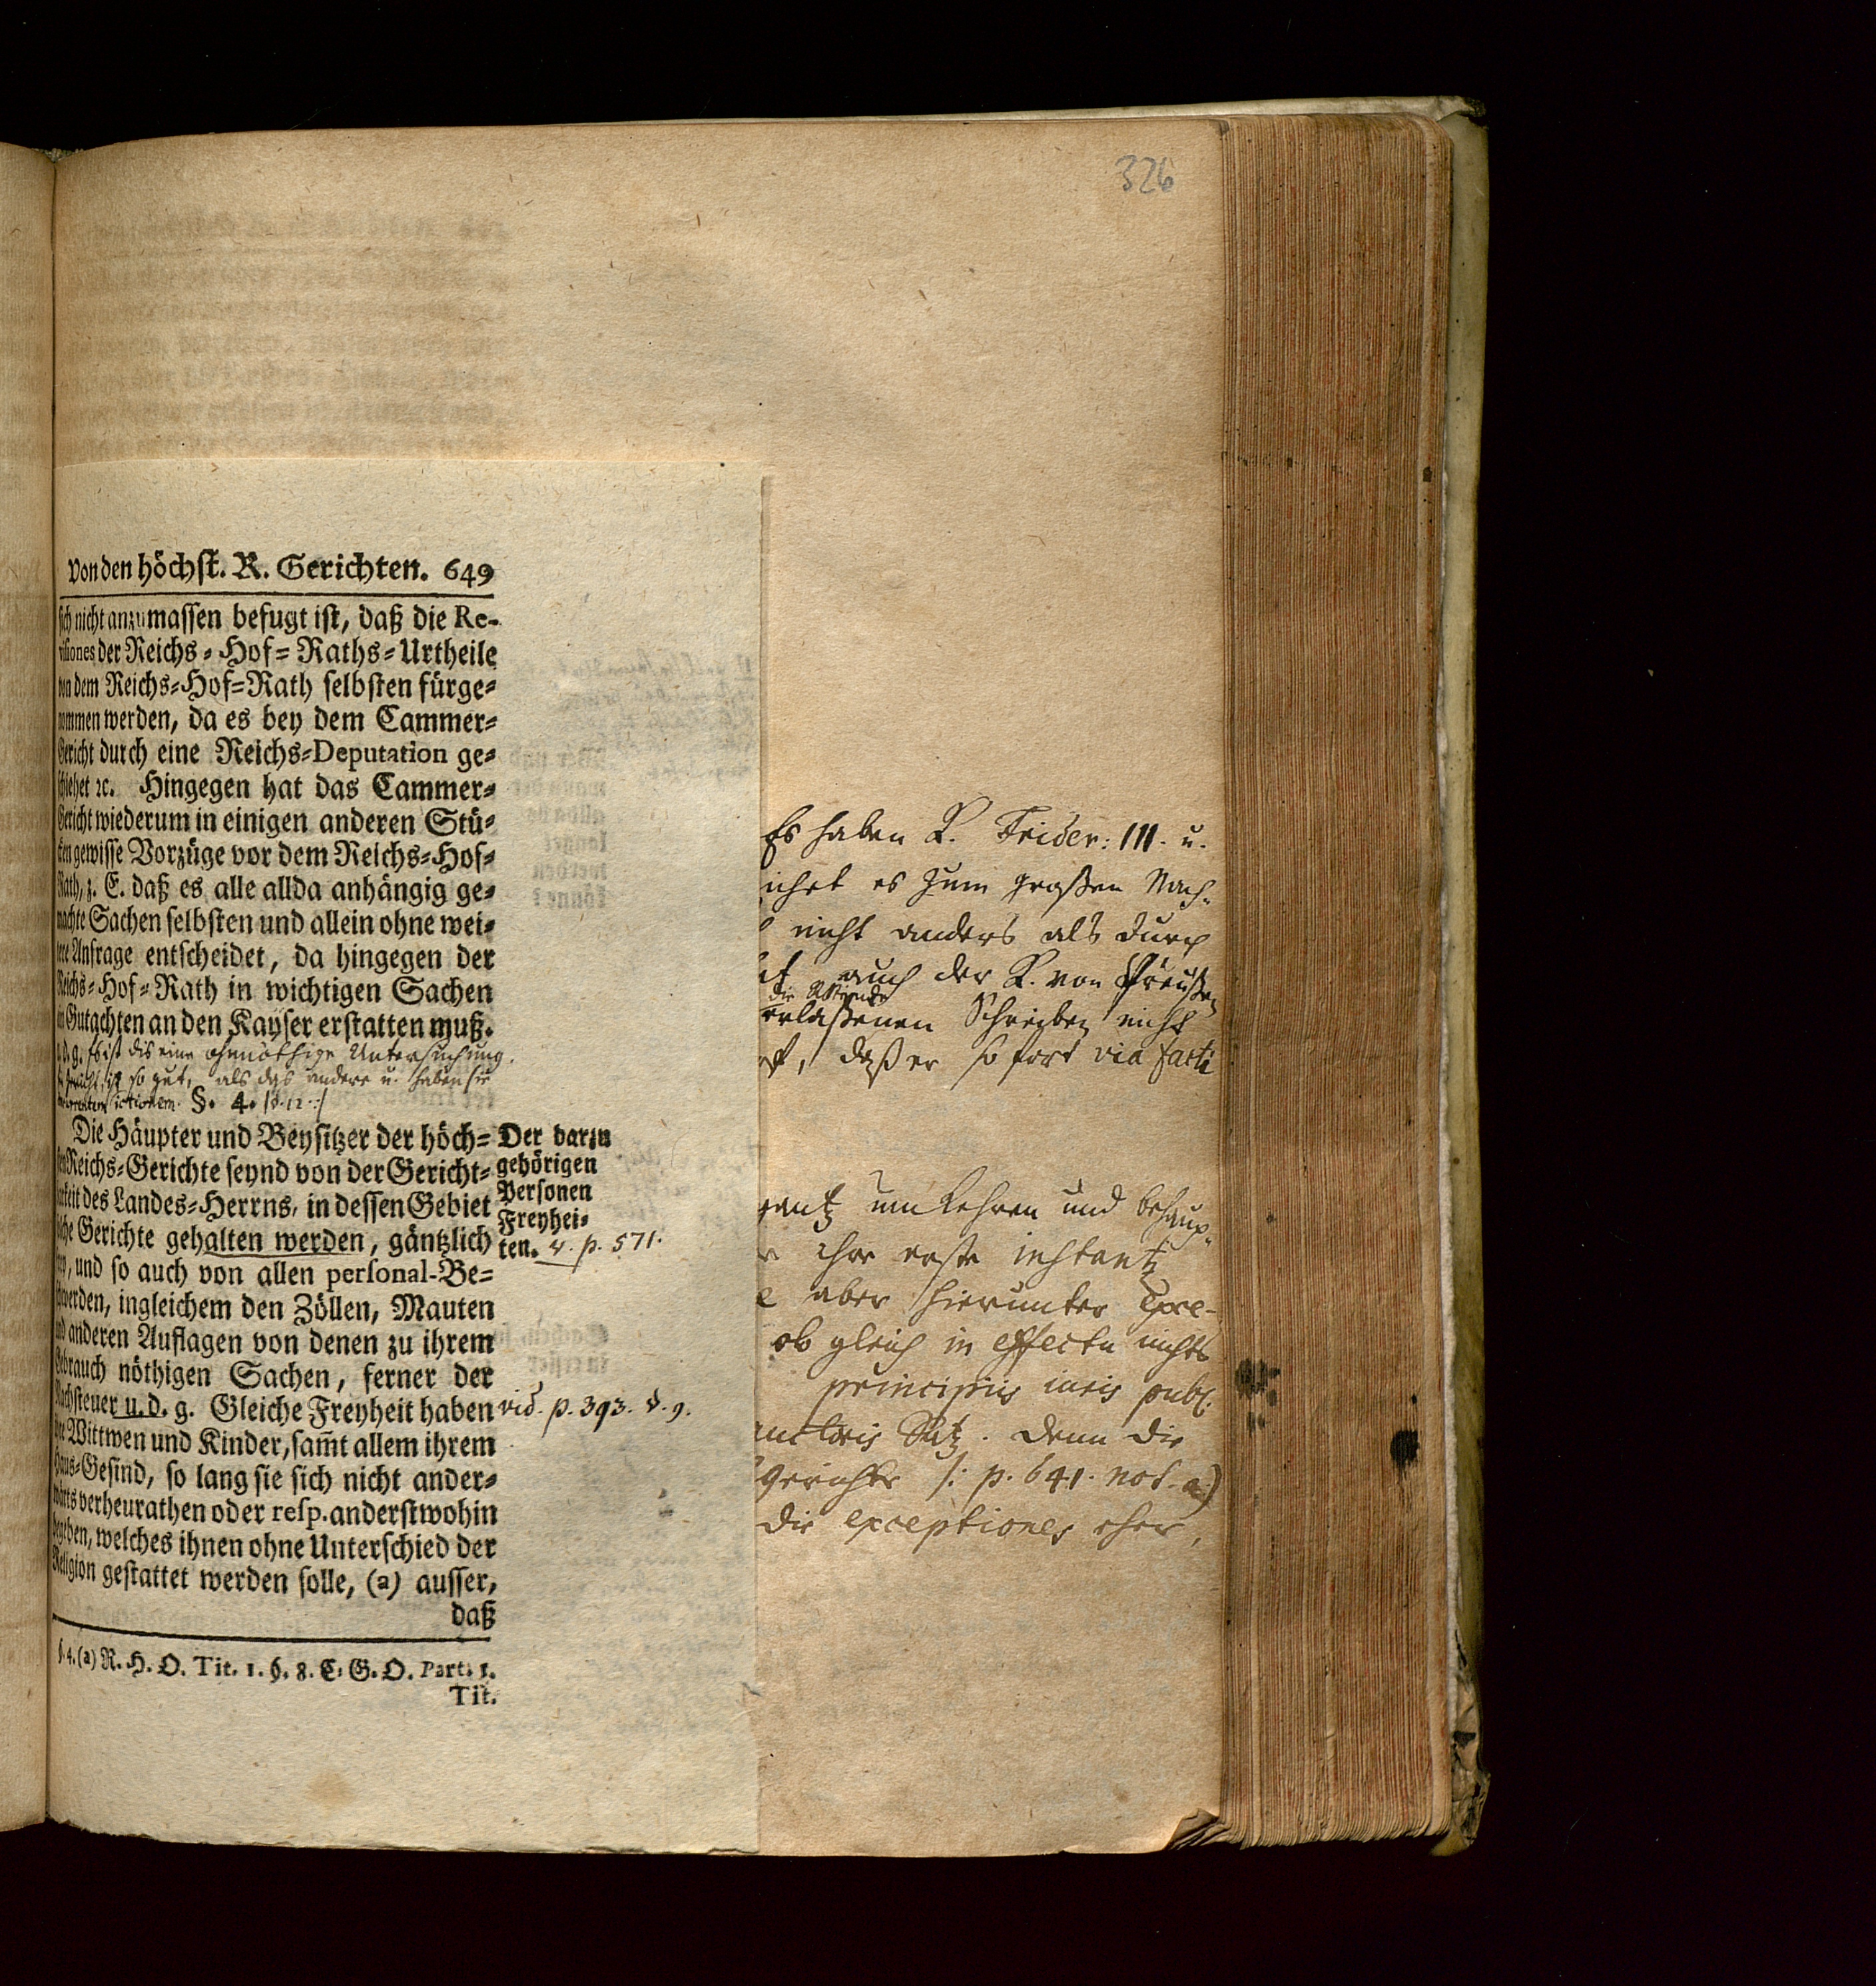 326
Von den höchst. R. Gerichten. 649
sich nicht anzumassen befugt ist, daß die Re-
visiones der Reichs-Hof-Raths-Urtheile
von dem Reichs-Hof-Rath selbsten fürge-
nommen werden, da es bey dem Cammer-
Gericht durch eine Reichs-Deputation ge-
schiehet ꝛc. Hingegen hat das Cammer-
Gericht wiederum in einigen anderen Stü-
cken gewisse Vorzüge vor dem Reichs-Hof-
Rath, z. E. daß es alle allda anhängig ge-
machte Sachen selbsten und allein ohne wei-
tere Anfrage entscheidet, da hingegen der
Reichs-Hof-Rath in wichtigen Sachen
ein Gutachten an den Kayser erstatten muß.
Es ist dis eine ohnnöthige Untersuchung.
ist so gut, als das andere u. haben sie
§. 4.
Die Häupter und Beysitzer der höch-
sten Reichs-Gerichte seynd von der Gericht-
barkeit des Landes-Herrns, in dessen Gebiet
solche Gerichte gehalten werden, gäntzlich
frey, und so auch von allen personal-Be-
schwerden, ingleichem den Zöllen, Mauten
und anderen Auflagen von denen zu ihrem
Gebrauch nöthigen Sachen, ferner der
Nachsteuer u. d. g. Gleiche Freyheit haben
ihre Wittwen und Kinder, sam̃t allem ihrem
Haus-Gesind, so lang sie sich nicht ander-
wärts verheurathen oder resp. anderstwohin
begeben, welches ihnen ohne Unterschied der
Religion gestattet werden solle, (a) ausser,
daß
§. 4. (a) R. H. O. Tit. 1. §. 8. C. G. O. Part. 1.
Tit.
Der darzu
gehörigen
Personen
Freyhei-
ten. v. p. 571.
vid. p. 393. §. 9.
Es haben K. Frider: III. u.
es zum großen Nach-
nicht anders als durch
auch der K. von Preußen
die
erlaßenen Schreiben nicht
daß er so fort via facti
gantz umkehren und behaup-
ihre erste instantz
aber hierunter
ob gleich in effectu nichts
principiis iuris publ.
Satz. Denn die
gerichte /: p. 641. not. a:)
die exceptiones eher,